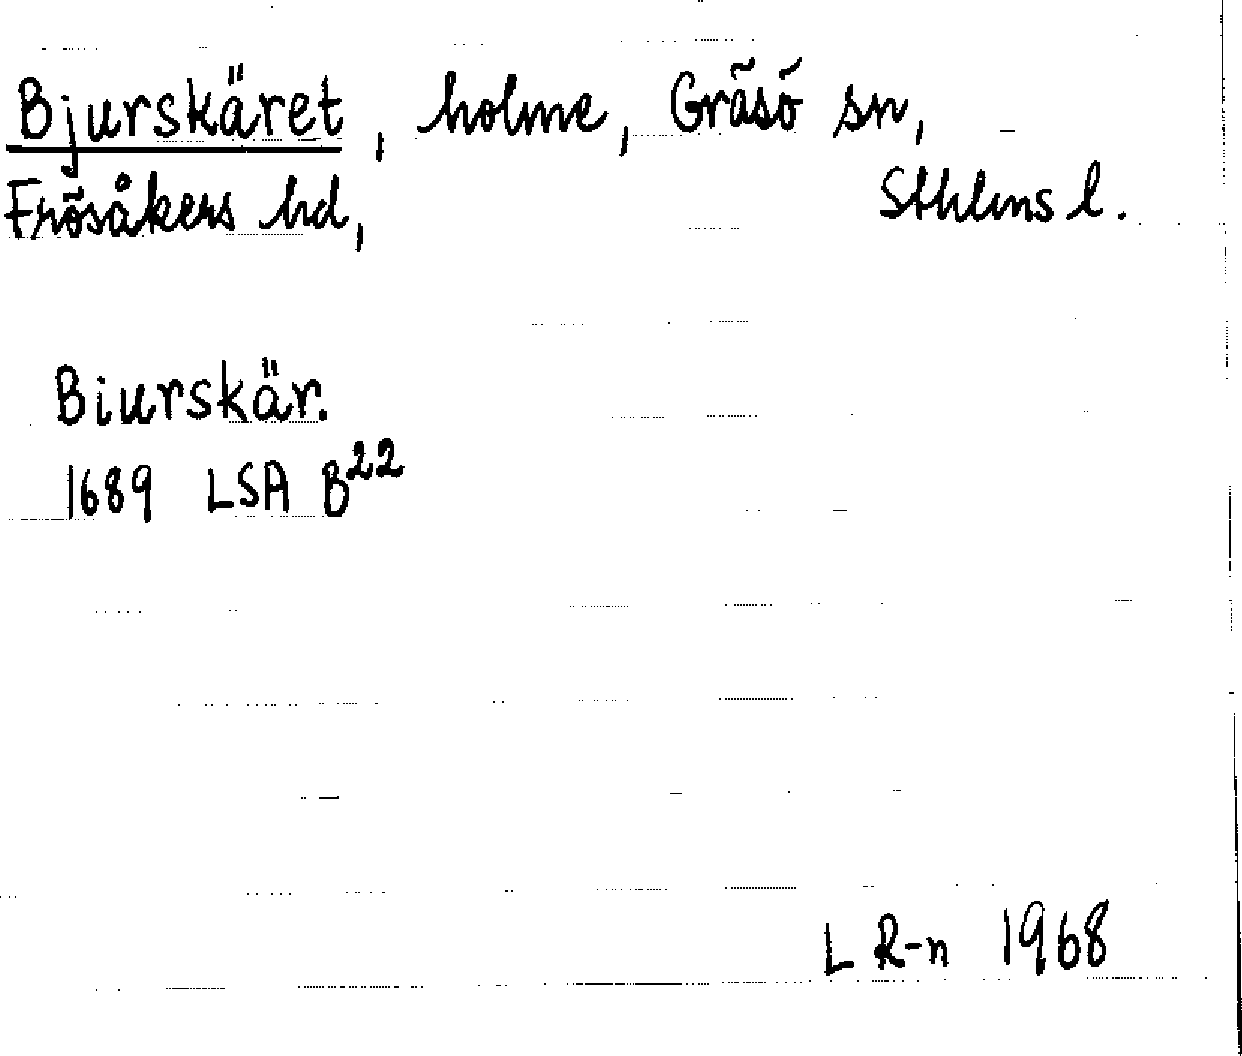 Bjurskäret, holme, Gräsö sn,
Frösåkers hd, Sthlms l.
Biurskär.
1689 LSA B22
L R-n 1968